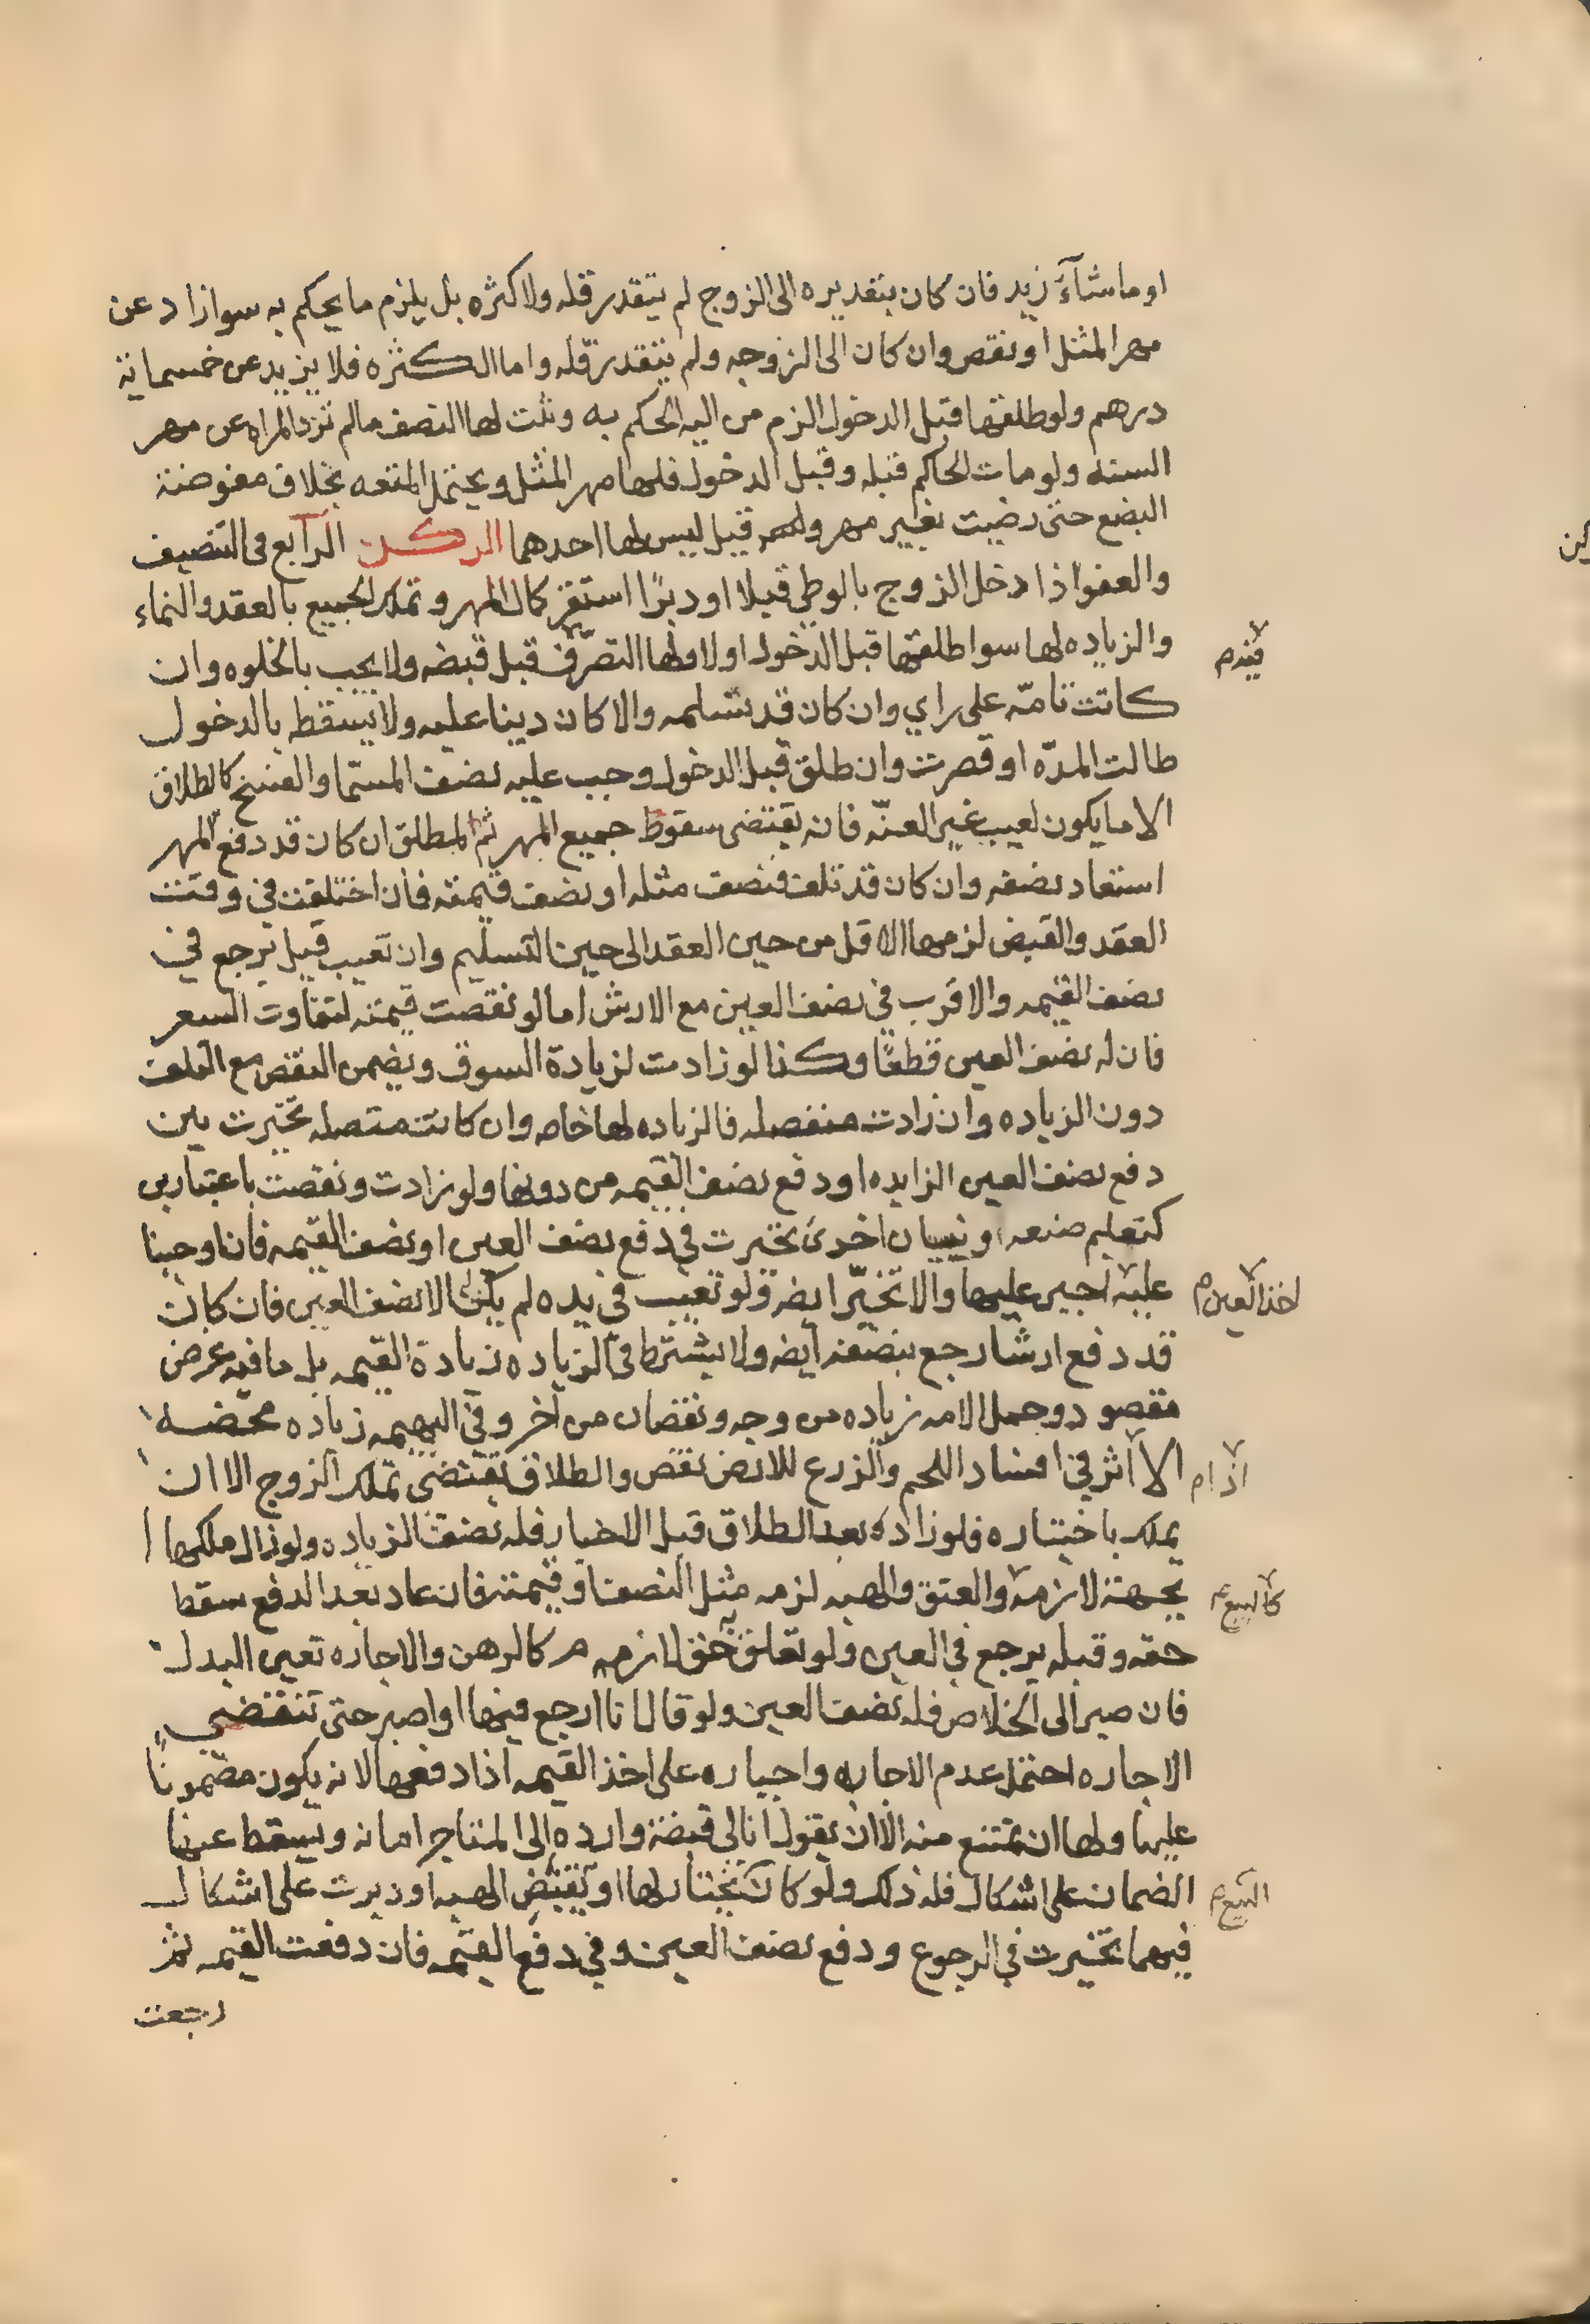 او ما شآء زيد فان كان بتقديره الى الزوج لم يتقدر قله ولا كثره بل يلزم ما يحكم به سوا زاد عن
مهر المثل او نقص وان كان الى الزوجه ولم يتقدر قله واما الكثره فلا يزيد عن خمسماية
درهم ولو طلقها قبل الدخول الزم من اليه الحكم به وثبت لها النصف ما لم تزد المراه عن مهر
السنه ولو مات الحاكم قبله وقبل الدخول فلها مهر المثل ويحتمل المتعه بخلاف مفوضة
البضع حتى رضيت بغير مهر وله قيل ليس لها احدهما الركن الرابع فى التنصيف
والعفو اذا دخل الزوج بالوطي قبلا او دبرًا استقر كمال المهر وتملك الجميع بالعقد والنماء
والزياده لها سوا طلقها قبل الدخول او لا ولها التصرّف قبل قبضه ولا يجب بالخلوه وان
فيندم
كانت تامّه على راي وان كان قد تسلمه والا كان دينا عليه ولا يسقط بالدخول
طالت المدّه او قصرت وان طلق قبل الدخول وجب عليه نصف المسمّا والفسخ كالطلاق
الا ما يكون لعيب غير العنّه فانه يقتضى سقوط جميع المهر ثم المطلق ان كان قد دفع المهر
استعاد نصفه وان كان قد تلف فنصف مثله او نصف قيمته فان اختلفت في وقت
العقد والقبض لزمها الاقل من حين العقد الى حين التسليم وان تعيب قيل يرجع في
نصف القيمه والاقرب في نصف العين مع الارش اما لو نقصت قيمته لتفاوت السعر
فان له نصف العين قطعًا وكذا لو زادت لزيادة السوق ويضمن النقص مع التلف
دون الزياده وان زادت منفصله فالزياده لها خاصه وان كانت متصله تخيرت بين
دفع نصف العين الزايده او دفع نصف القيمه من دونها ولو زادت ونقصت باعتبارين
كتعليم صنعه ونسيان اخرى تخيرت في دفع نصف العين او نصف القيمه فان اوجبنا
عليه اجبر عليها والا تخيّر ايضه ولو تعيب في يده لم يكن له الا نصف العين فان كان
اخذ العين م
قد دفع ارشا رجع بنصفه ايضه ولا يشترط في الزياده زيادة القيمه بل ما فيه غرض
مقصود وحمل الامه زياده من وجه ونقصان من آخر وفي البهيمه زياده محضه
الا اثر في افساد اللحم والزرع للارض نقص والطلاق يقتضى تملك الزوج الا ان
اذا م
يملك باختياره فلو زاده بعد الطلاق قبل الاختيار فله نصف الزياده ولو زال ملكها
بجهة لازمه والعتق والهبه لزمه مثل النصف او قيمته فان عاد بعد الدفع سقط
كالبيع م
حقه وقبله يرجع في العين ولو تعلق حق لازم م كالرهن والاجاره تعين البدل
فان صبر الى الخلاص فله نصف العين ولو قال انا ارجع فيها او اصبر حتى تنقضي
الاجاره احتمل عدم الاجابه واجباره على اخذ القيمه اذا دفعها لانه يكون مضمونًا
عليها ولها ان تمتنع منه الا ان يقول انا لي قبضة وارده الى المتاجر امانه ويسقط عنها
الضمان على اشكال فله ذلك ولو كان بخيار لها او يقبض الهبه او دبرت على اشكال
البيع م
فيهما تخيرت في الرجوع ودفع نصف العين وفي دفع القيمه فان دفعت القيمه ثم
رجعت